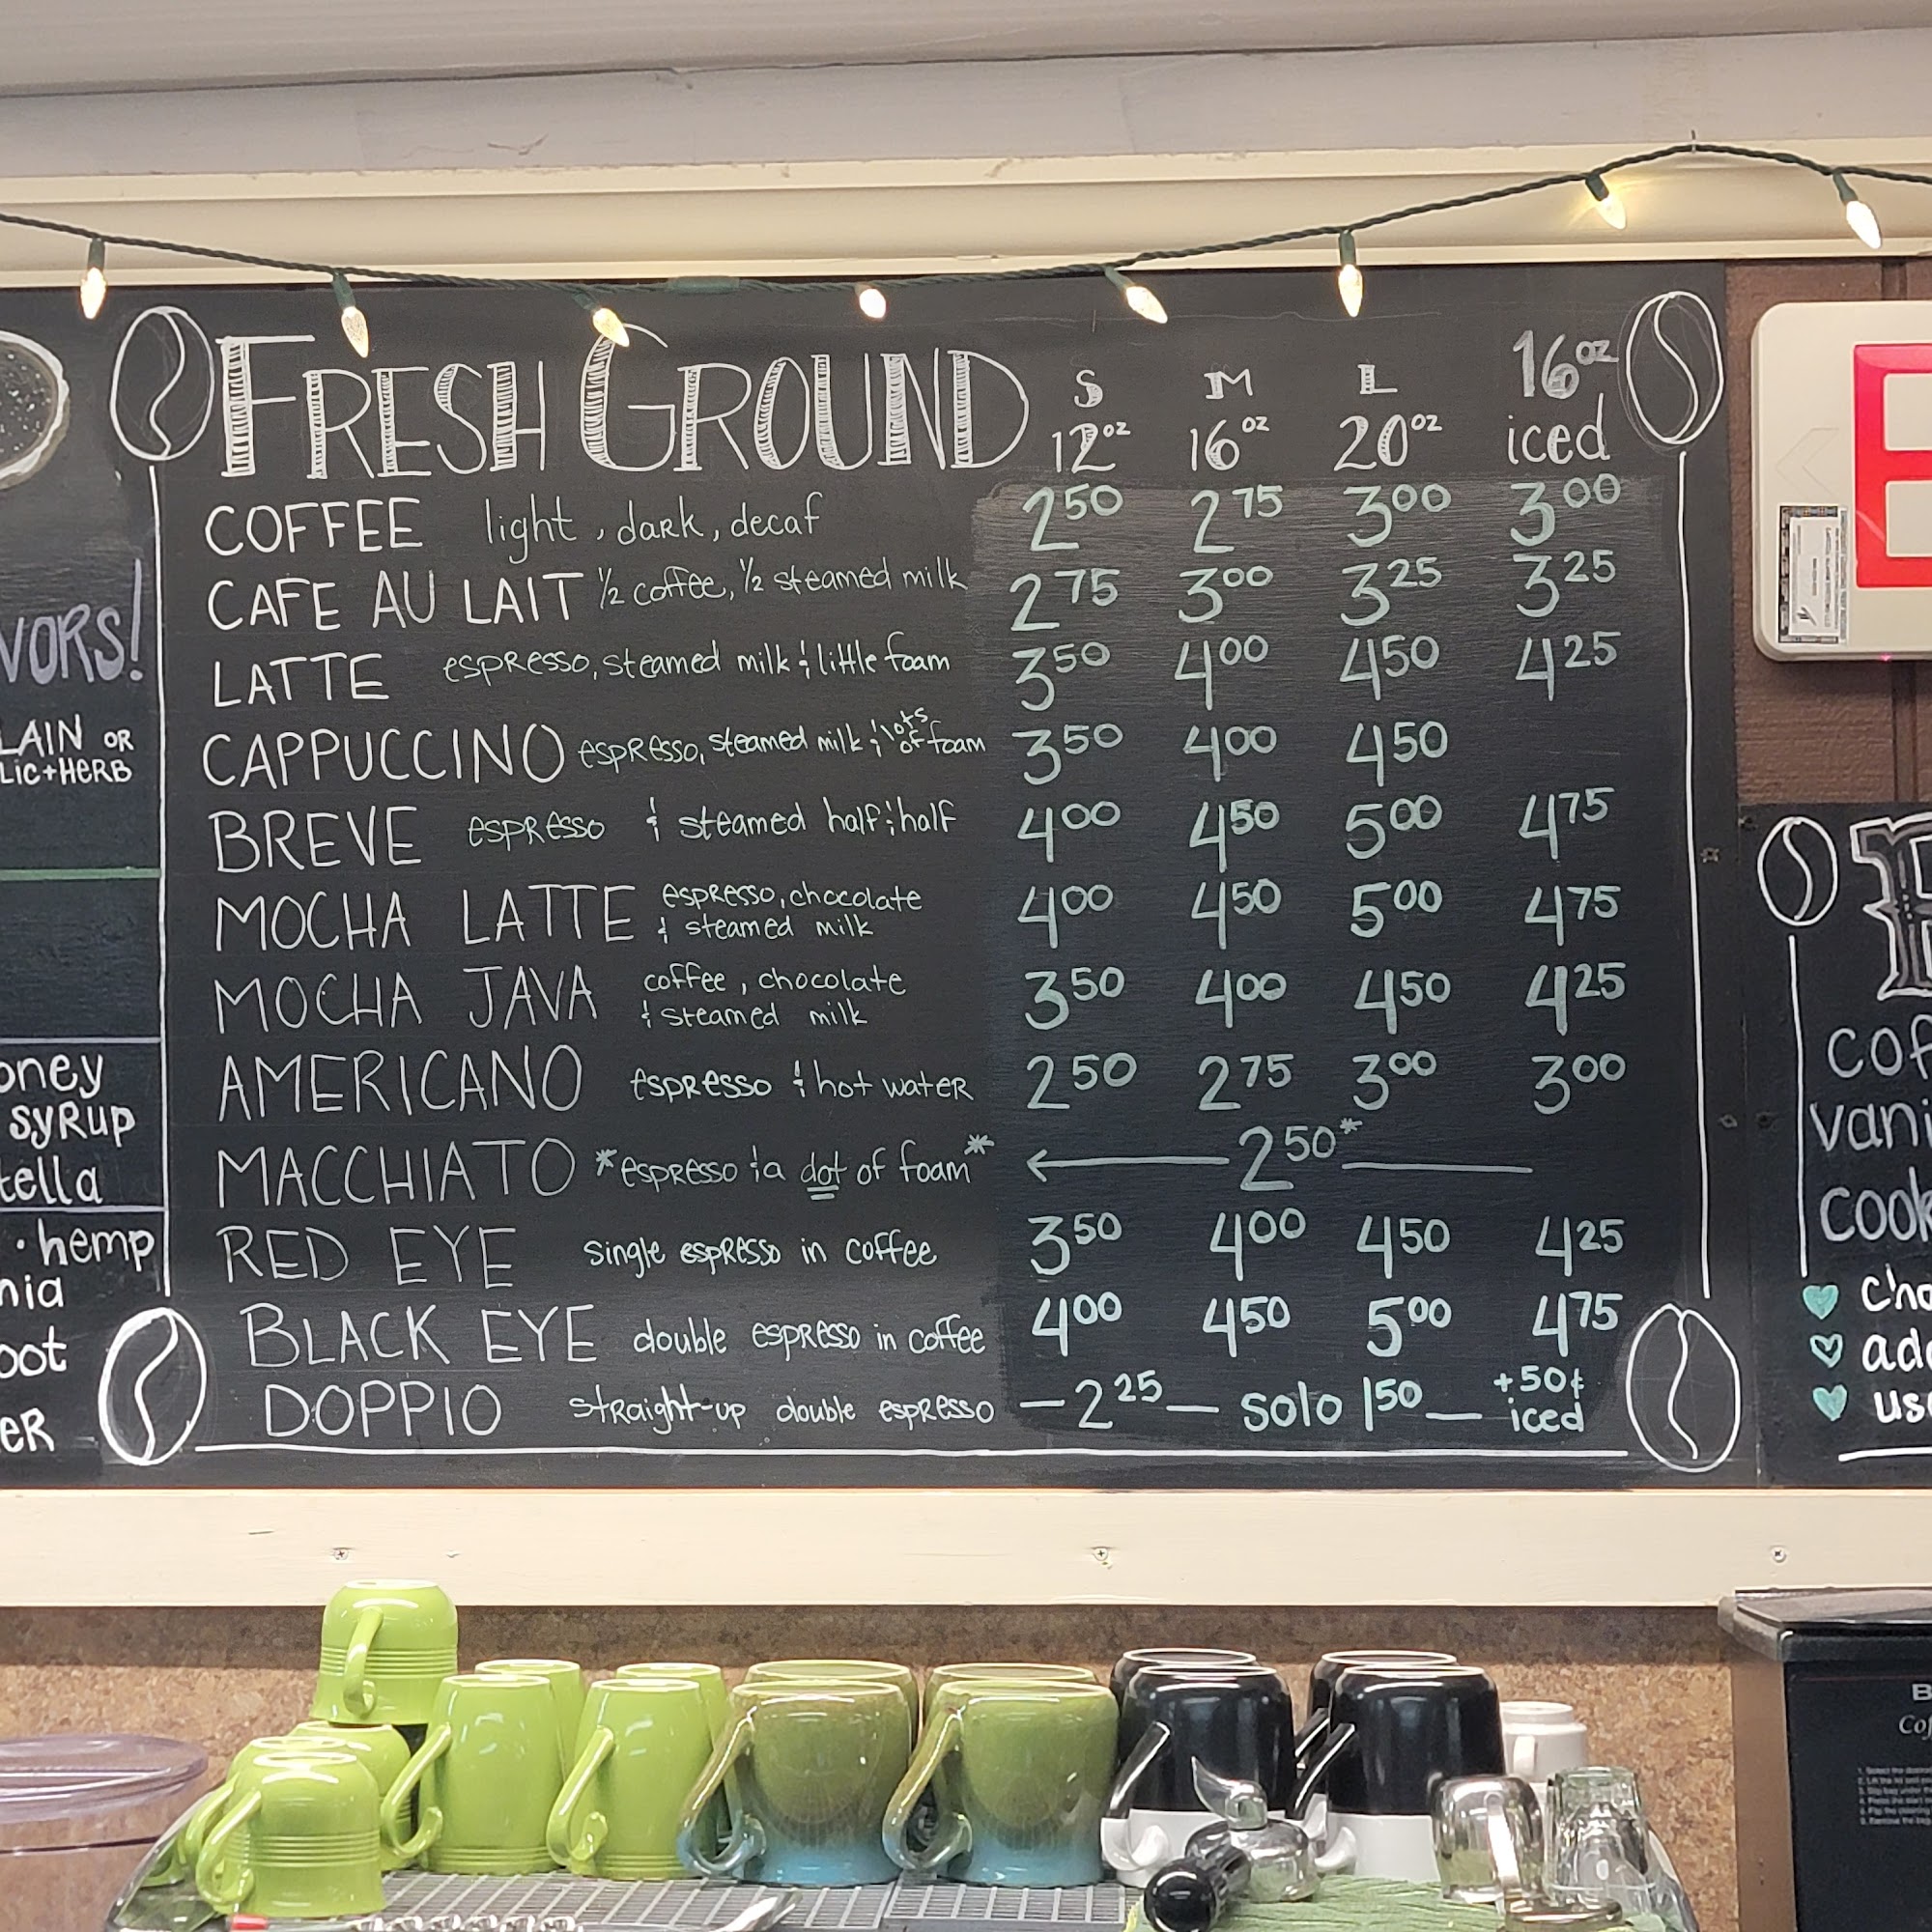 FRESH GROUND S M L 16oz
12oz 16oz 20oz iced
COFFEE light, dark, decaf 2 50 2 75 3 00 3 00
CAFE AU LAIT 1/2 coffee, 1/2 steamed milk 2 75 3 00 3 25 3 25
LATTE espresso, steamed milk & little foam 3 50 4 00 4 50 4 25
CAPPUCCINO espresso, steamed milk & lots of foam 3 50 4 00 4 50
BREVE espresso & steamed half & half 4 00 4 50 5 00 4 75
MOCHA LATTE espresso, chocolate & steamed milk 4 00 4 50 5 00 4 75
MOCHA JAVA coffee, chocolate & steamed milk 3 50 4 00 4 50 4 25
AMERICANO espresso & hot water 2 50 2 75 3 00 3 00
MACCHIATO *espresso & a dot of foam* ← 2 50* —
RED EYE single espresso in coffee 3 50 4 00 4 50 4 25
BLACK EYE double espresso in coffee 4 00 4 50 5 00 4 75
DOPPIO straight-up double espresso — 2 25 — solo 1 50 — +50¢ iced
VORS!
LAIN OR
LIC+HERB
oney
syrup
tella
· hemp
nia
oot
eR
E
cof
vani
cook
cho
add
use